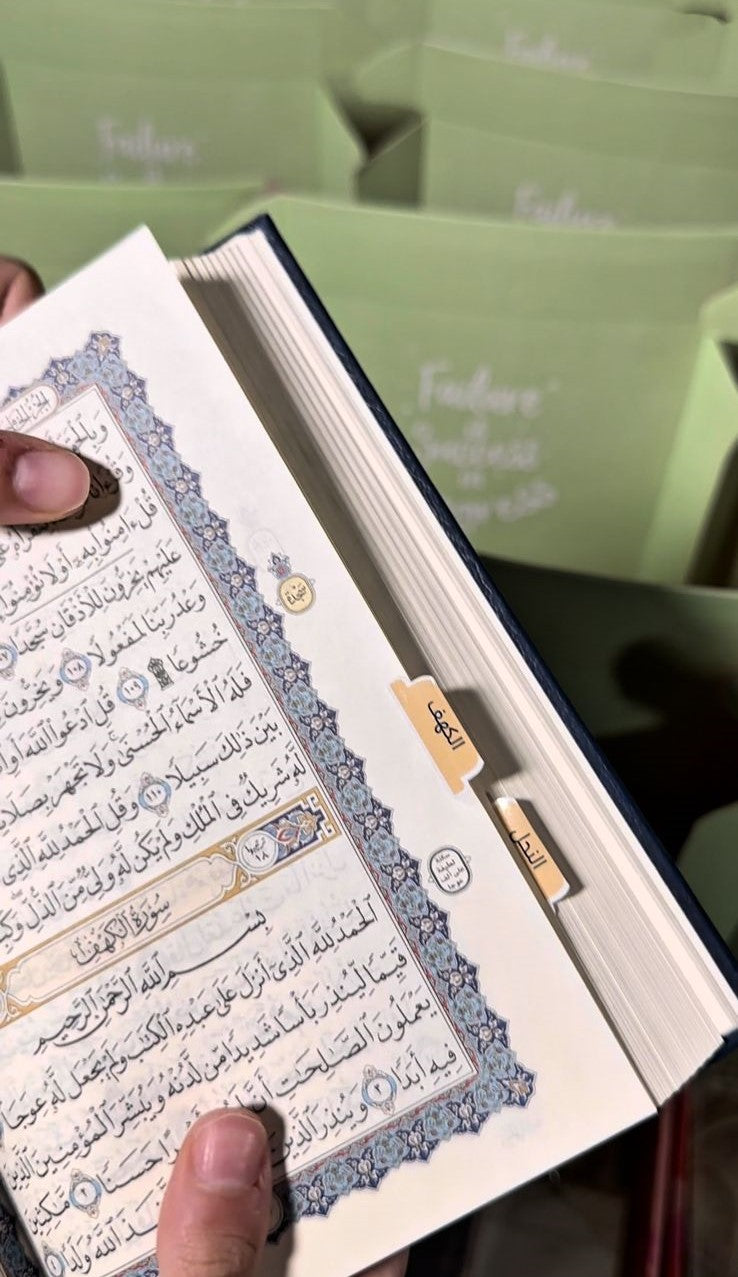 Failure
Failure
Failure
Failure
is
Success
in
Progress
قُلْ ءَامِنُوا۟ بِهِۦٓ أَوْ لَا تُؤْمِنُوٓا۟
عَلَيْهِمْ يَخِرُّونَ لِلْأَذْقَانِ سُجَّدًا
وَعْدُ رَبِّنَا لَمَفْعُولًا ١٠٨ وَيَخِرُّونَ
خُشُوعًا ۩ ١٠٩ قُلِ ٱدْعُوا۟ ٱللَّهَ أَوِ
فَلَهُ ٱلْأَسْمَآءُ ٱلْحُسْنَىٰ وَلَا تَجْهَرْ
بَيْنَ ذَٰلِكَ سَبِيلًا ١١٠ وَقُلِ ٱلْحَمْدُ لِلَّهِ ٱلَّذِى
لَّهُۥ شَرِيكٌ فِى ٱلْمُلْكِ وَلَمْ يَكُن لَّهُۥ وَلِىٌّ مِّنَ ٱلذُّلِّ
سُورَةُ ٱلْكَهْفِ
بِسْمِ ٱللَّهِ ٱلرَّحْمَٰنِ ٱلرَّحِيمِ
ٱلْحَمْدُ لِلَّهِ ٱلَّذِىٓ أَنزَلَ عَلَىٰ عَبْدِهِ ٱلْكِتَٰبَ وَلَمْ يَجْعَل لَّهُۥ عِوَجَا
قَيِّمًا لِّيُنذِرَ بَأْسًا شَدِيدًا مِّن لَّدُنْهُ وَيُبَشِّرَ ٱلْمُؤْمِنِينَ ٱلَّذِينَ
يَعْمَلُونَ ٱلصَّٰلِحَٰتِ حَسَنًا ٢ مَّٰكِثِينَ
فِيهِ أَبَدًا ٣ وَيُنذِرَ ٱلَّذِينَ ٱللَّهُ وَلَدًا
سجدة
سكتة
لطيفة
على ألف
عوجا
الكهف
النحل